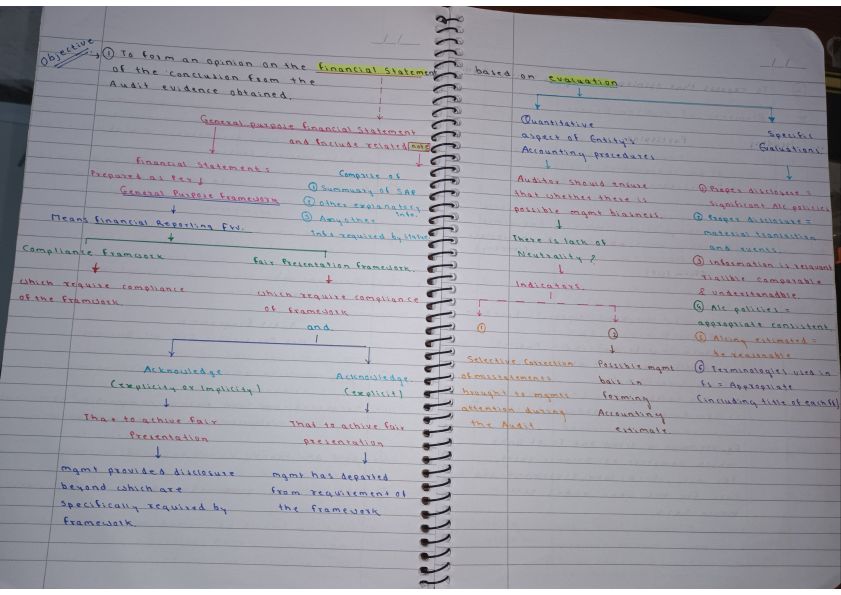 Objective
① To form an opinion on the financial Statemen
of the conclusion from the
Audit evidence obtained.
General purpose financial Statement
and Include related note
financial Statements
Prepared as Per
General Purpose Framework
Means Financial Reporting Frw.
Comprise of
① Summary of SAP
② Other explanatory
Info.
③ Any other
Info required by statue
Compliance Framwork
which require compliance
of the Framwork.
Fair Presentation Framework.
which require compliance
of framework
and
Acknowledge
(explicity or Implicity)
That to achive fair
Presentation
mgmt provided disclosure
beyond which are
specifically required by
framework.
Acknowledge.
(explicit)
That to achive fair
presentation
mgmt has departed
from requirement of
the framework
based on evaluation
Quantitative
aspect of Entity's
Accounting procedures
Auditor should ensure
that whether there is
possible mgmt biasness.
There is lack of
Neutrality?
Indicators.
①
Selective Correction
of misstatements
brought to mgmts
attention during
the Audit
②
Possible mgmt
bais in
forming
Accounting
estimate.
Specific
Evaluations:
① Proper disclosure =
significant A/c policies
② Proper disclosure =
material transaction
and events.
③ Information is relevant
rialible comparable
& understanadble.
④ A/c policies =
appropriate consistent
⑤ A/cing estimated =
be reasonable
⑥ Terminologies used in
fs = Appropriate
(including title of each fs)